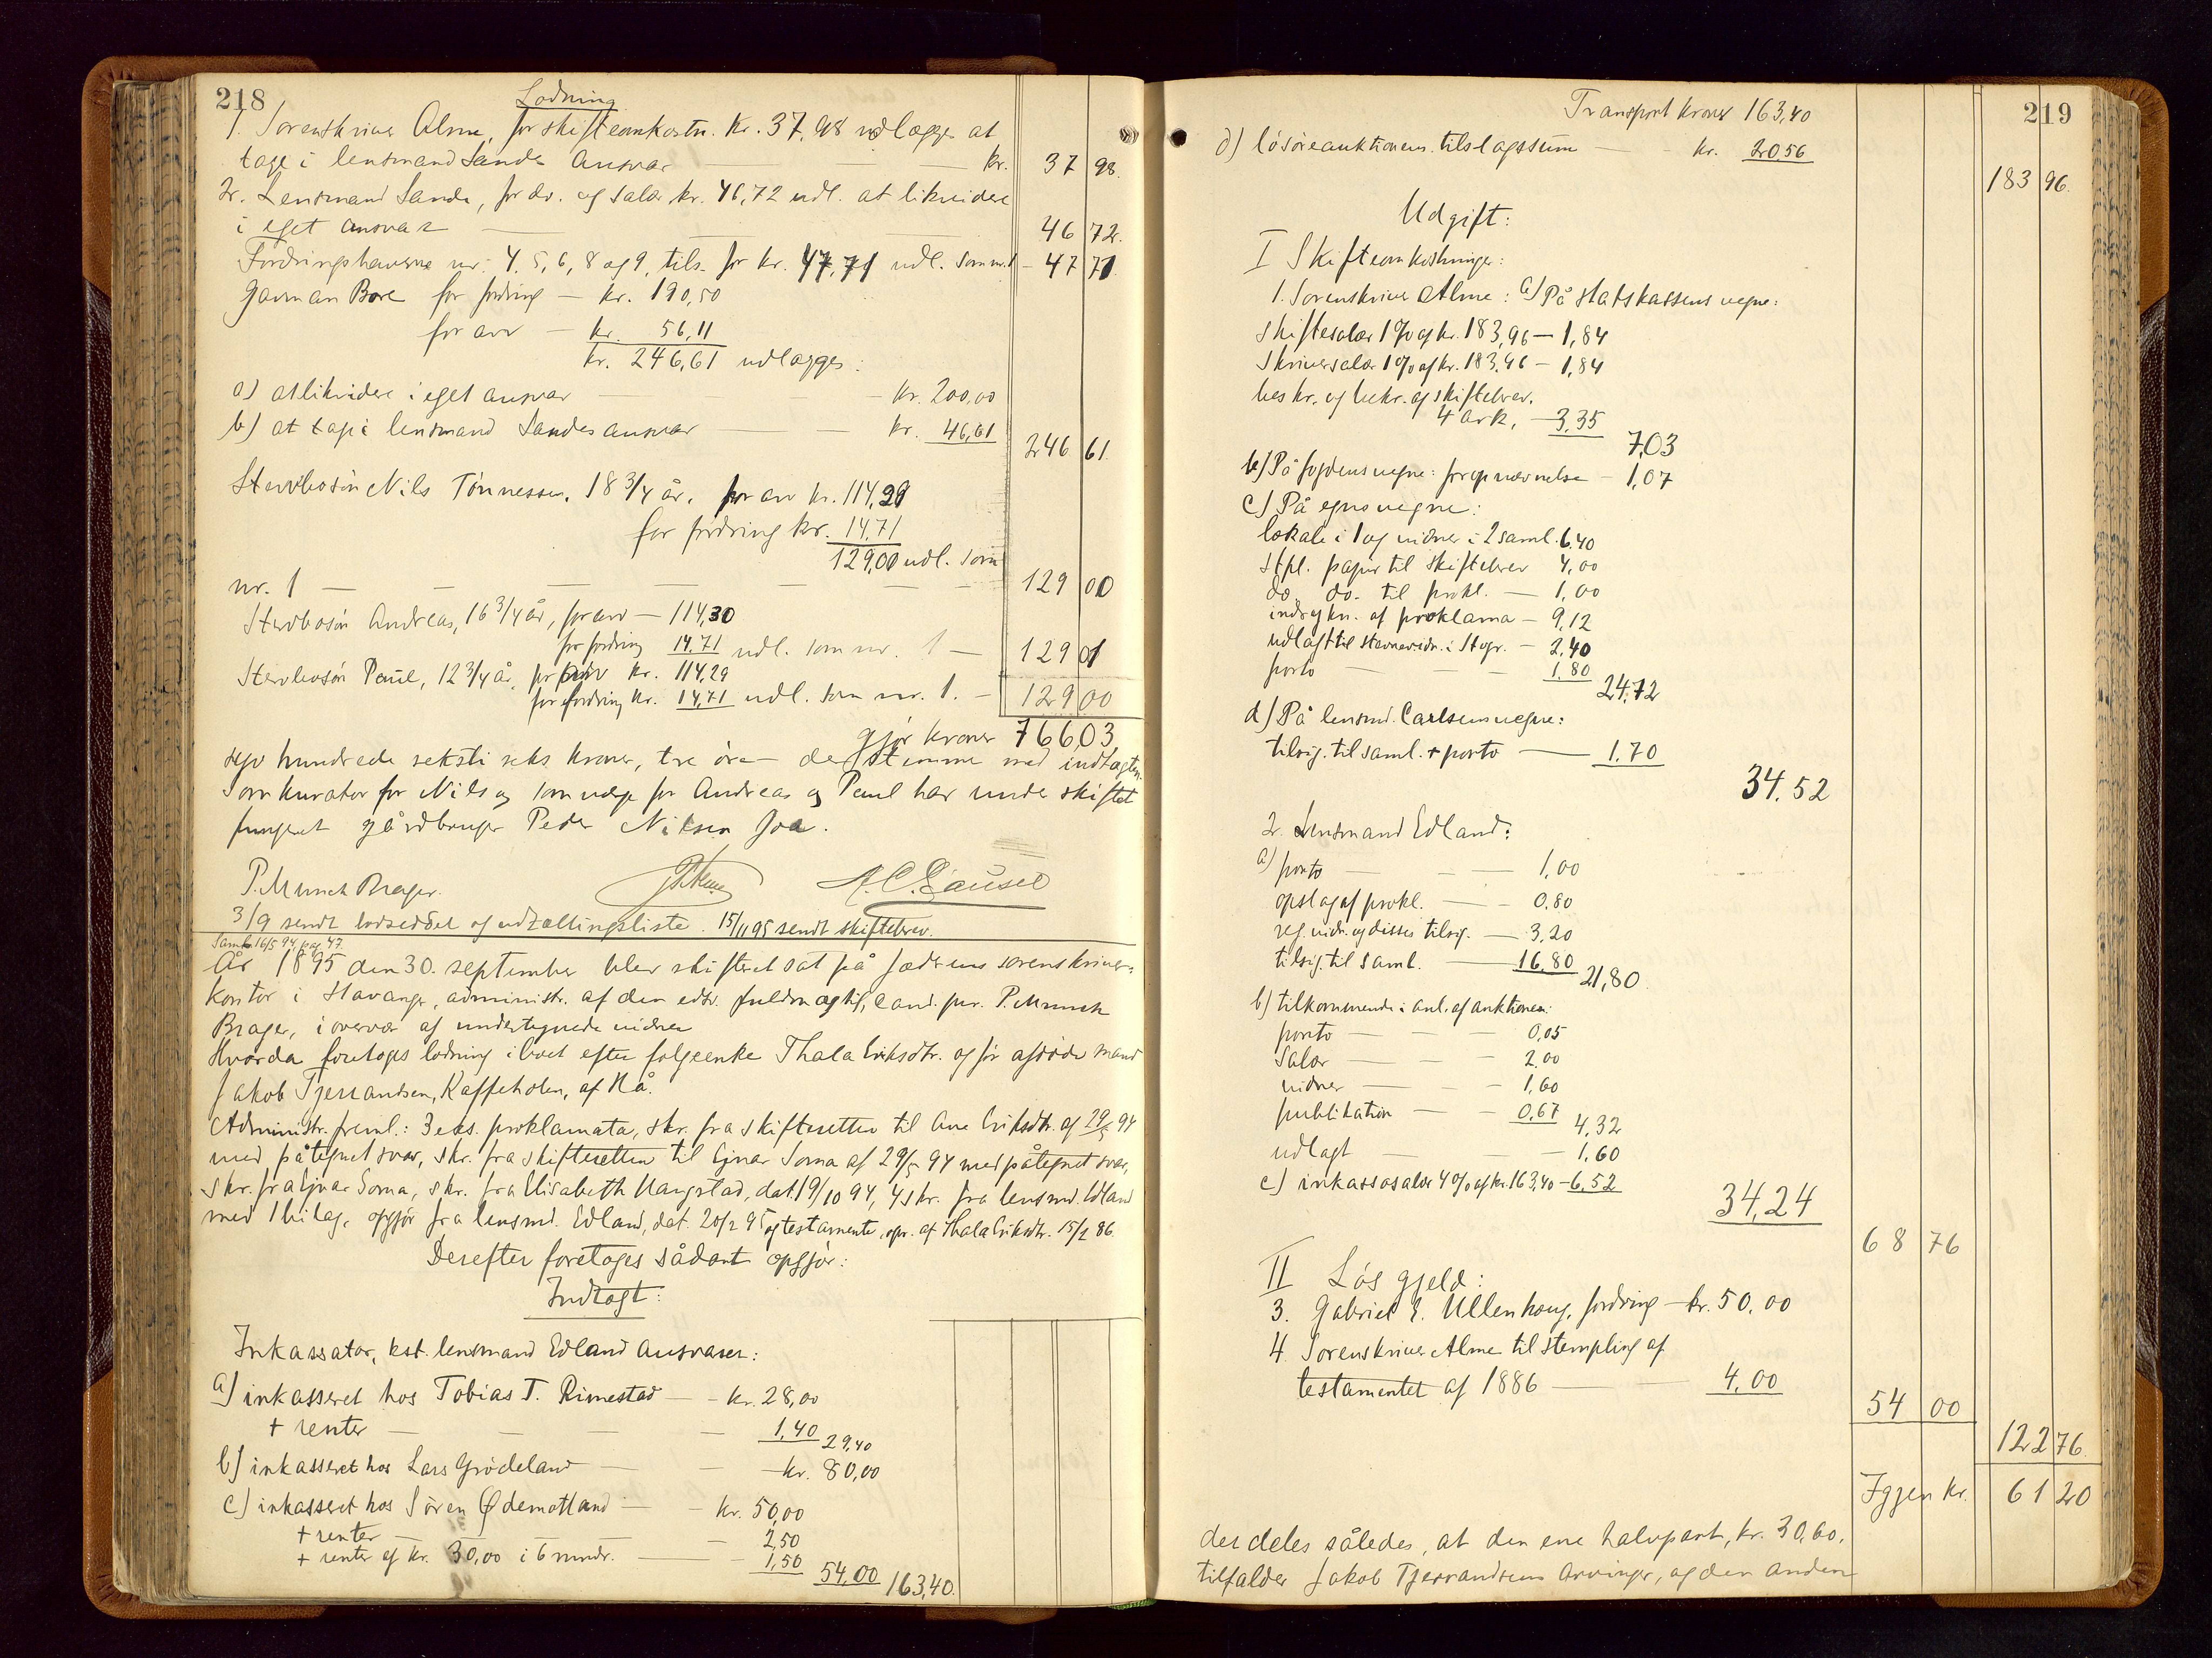 218
Lodning
1. Sorenskriver Alme, for skifteomkostn. kr. 37,98 udlægges at
tage i lensmand Sandes ansvar — kr. 37 98.
2. Lensmand Sande, for do. og salær kr. 46,72 udl. at likvidere
i eget ansvar — 46 72.
Fordringshaverne nr. 4, 5, 6, 8 og 9, tils. for kr. 47,71 udl. som nr. 1 — 47 71
Gaarman Bore for fordring — kr. 190,50
for arv — kr. 56,11
kr. 246,61 udlægges:
a) at likvidere i eget ansvar — kr. 200,00
b) at tage i lensmand Sandes ansvar — kr. 46,61
246 61.
Stervbosön Nils Tönnessen, 18 3/4 år, for arv kr. 114,29
for fordring kr. 14,71
129,00 udl. som
nr. 1 — 129 00
Stervbosön Andreas, 16 3/4 år, for arv — 114,30
for fordring 14,71 udl. som nr. 1 — 129 01
Stervbosön Paul, 12 3/4 år, for arv kr. 114,29
for fordring kr. 14,71 udl. som nr. 1. — 129 00
gjör kroner 766,03
syv hundrede seksti seks kroner, tre öre — der stemme med indtægten.
Som kurator for Nils og som værge for Andreas og Paul har under skiftet
fungeret gårdbruger Peder Nilsen Joa.
P. Munch Brager.
3/9 sendt lodseddel og udtællingsliste. 15/11 95 sendt skiftebrev.
Saml. 16/5 94, pag. 47.
År 1895 den 30. september blev skifteret sat på Jæderens sorenskriver-
kontor i Stavanger, administr. af den edsv. fuldmægtig, cand. jur. P. Munch
Brager, i overvær af undertegnede vidner
Hvorda foretoges lodning i boet efter folgeenke Thala Eriksdtr. og för afdöde mand
Jakob Tjerrandsen, Kaffeholen, af Hå.
Administr. freml.: 3 eks. proklamata, skr. fra skifteretten til Ane Eriksdtr. af 29/5 94
med påtegnet svar, skr. fra skifteretten til Ejvar Soma af 29/5 94 med påtegnet svar,
skr. fra Ejvar Soma, skr. fra Elisabeth Haugstad, dat. 19/10 94, 4 skr. fra lensmd. Edland
med 1 bilag, opgjör fra lensmd. Edland, dat. 20/2 95 og testamente, opr. af Thala Eriksdtr. 15/2 86.
Derefter foretoges sådant opgjör:
Indtægt:
Inkassator, kst. lensmand Edland ansvarer:
a) inkasseret hos Tobias T. Rimestad — kr. 28,00
+ renter — 1,40 29,40
b) inkasseret hos Lars Grödeland — kr. 80,00
c) inkasseret hos Sören Ödemotland — kr. 50,00
+ renter — 2,50
+ renter af kr. 30,00 i 6 mndr. — 1,50 54,00 163,40.
219
Transport kroner 163,40
d) lösöreauktionens tilslagssum — kr. 20,56
183 96.
Udgift:
I Skifteomkostninger:
1. Sorenskriver Alme: a) På statskassens vegne:
skiftesalær 1 % af kr. 183,96 — 1,84
skriversalær 1 % af kr. 183,96 — 1,84
beskr. og bekr. af skiftebrev,
4 ark, — 3,35
7,03
b) På fogdens vegne: for opnævnelse — 1,07
c) På egne vegne:
lokale i 1 og vidner i 2 saml. 6,40
stpl. papir til skiftebrev 4,00
do. do. til prokl. — 1,00
indrykn. af proklama — 9,12
udlagt til stævnevidn. i Stvgr. — 2,40
porto — 1,80
24,72
d) På lensmd. Carlsens vegne:
tilsig. til saml. + porto — 1,70
34,52
2. Lensmand Edland:
a) porto — 1,00
opslag af prokl. — 0,80
reg. vidn. og disses tilsig. — 3,20
tilsig. til saml. — 16,80 21,80
b) tilkommende i anl. af auktionen:
porto — 0,05
Salær — 2,00
vidner — 1,60
publikation — 0,67 4,32
udlagt — 1,60
c) inkassosalær 4 % af kr. 163,40 — 6,52
34,24
68 76
II Lös gjeld:
3. Gabriel E. Ullenhaug, fordring — kr. 50,00
4. Sorenskriver Alme til stempling af
testamentet af 1886 — 4,00
54 00
122 76.
Igjen kr. 61 20
der deles således, at den ene halvpart, kr. 30,60,
tilfalder Jakob Tjerrandsens arvinger, og den anden